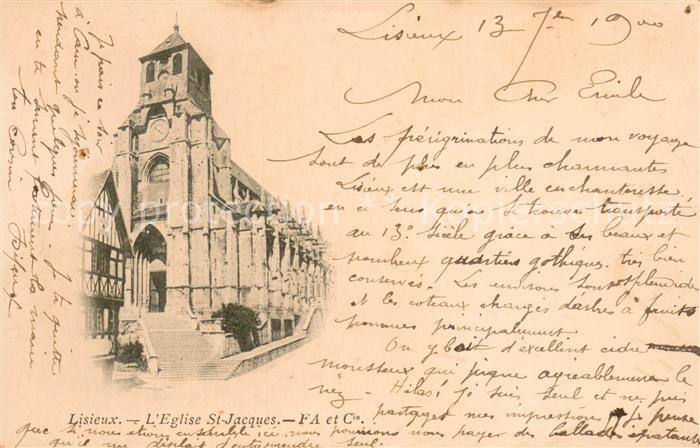 Lisieux 13 7re 1900
Mon Cher Emile
Les pérégrinations de mon voyage
sont de plus en plus charmantes
Lisieux est une ville enchanteresse
en ce sens qu'on se trouve transporté
au 13e Siècle grâce à ses beaux et
nombreux quartiers gothiques très bien
conservés. Les environs sont splendides
et les coteaux chargés d'arbres à fruits
pommes principalement
On y boit d'excellent cidre
mousseux qui pique agréablement le
nez - Hélas! Je suis seul et ne puis
partager mes impressions & je pense
que si nous étions ensemble ici nous pourrions nous payer des ballades
qu'il me déplait d'entreprendre seul.
Je pars ce soir
à Caen où je séjournerai
pendant quelques jours. Je te quitte
en te serrant la main
Ton cousin
Lisieux. — L'Eglise St-Jacques. — FA et Cie.